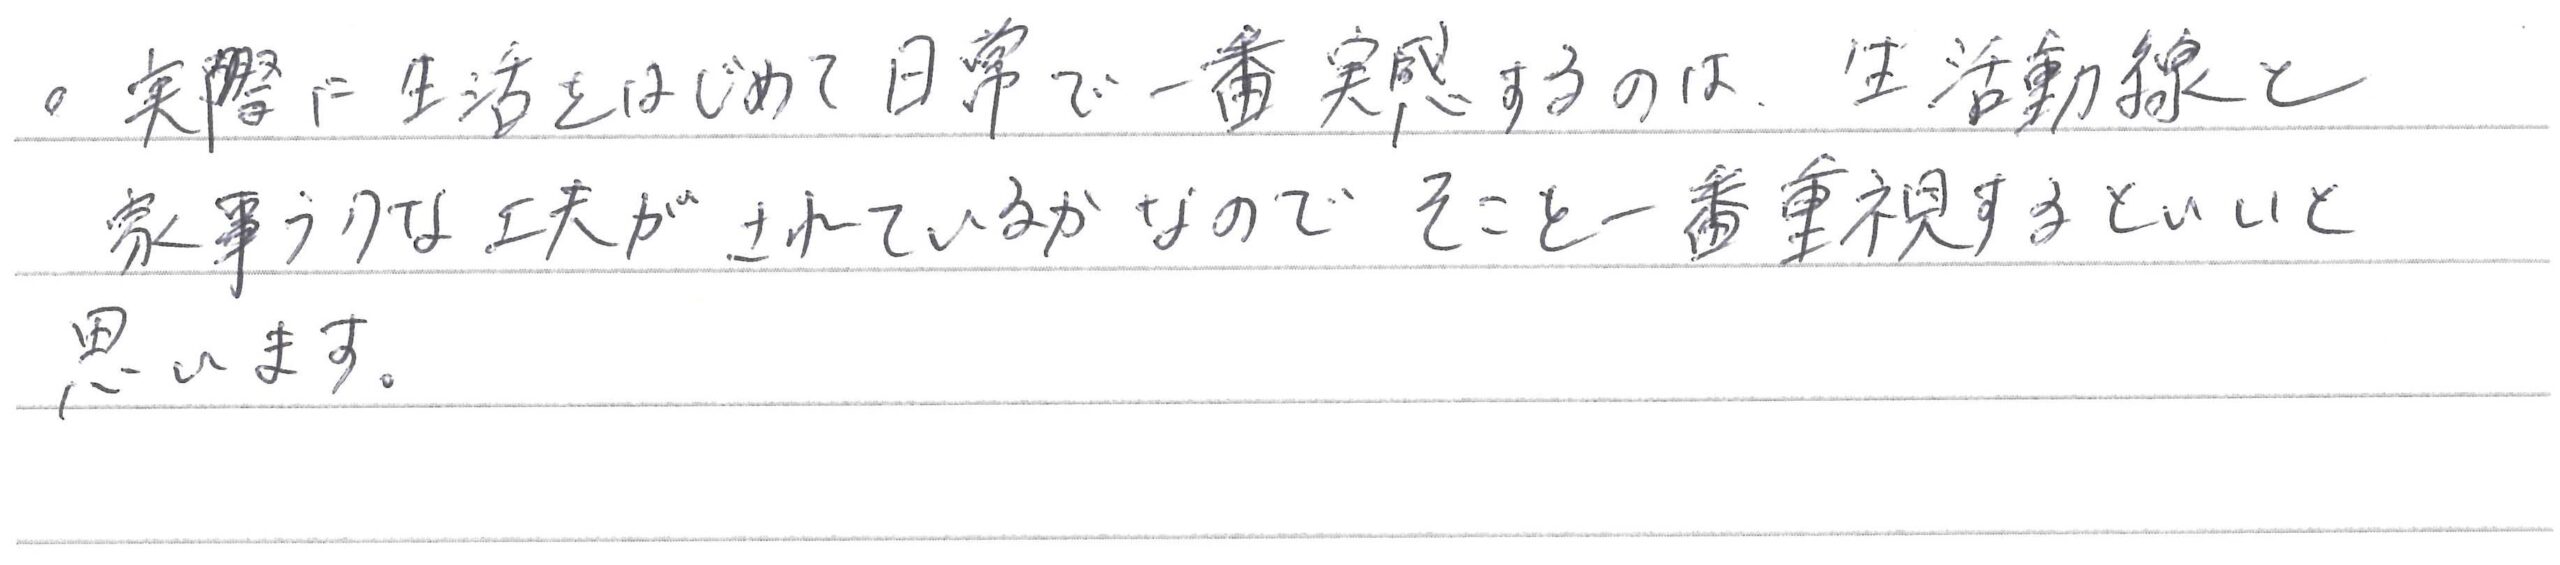 。実際に生活をはじめて日常で一番実感するのは、生活動線と
家事ラクな工夫がされているかなのでそこを一番重視するといいと
思います。